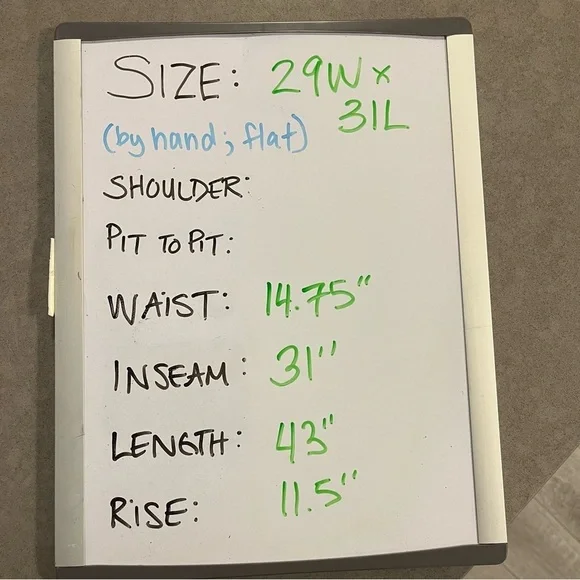 SIZE: 29W x
31L
(by hand; flat)
SHOULDER:
PIT TO PIT:
WAIST: 14.75"
INSEAM: 31"
LENGTH: 43"
RISE: 11.5"